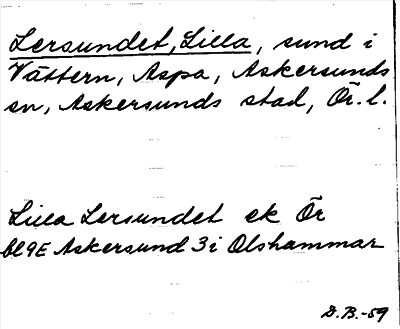 Lersundet, Lilla, sund i
Vättern, Aspa, Askersunds
sn, Askersunds stad, Ör. l.
Lilla Lersundet ek Ör
bl 9E Askersund 3 i Olshammar
D.B.-59